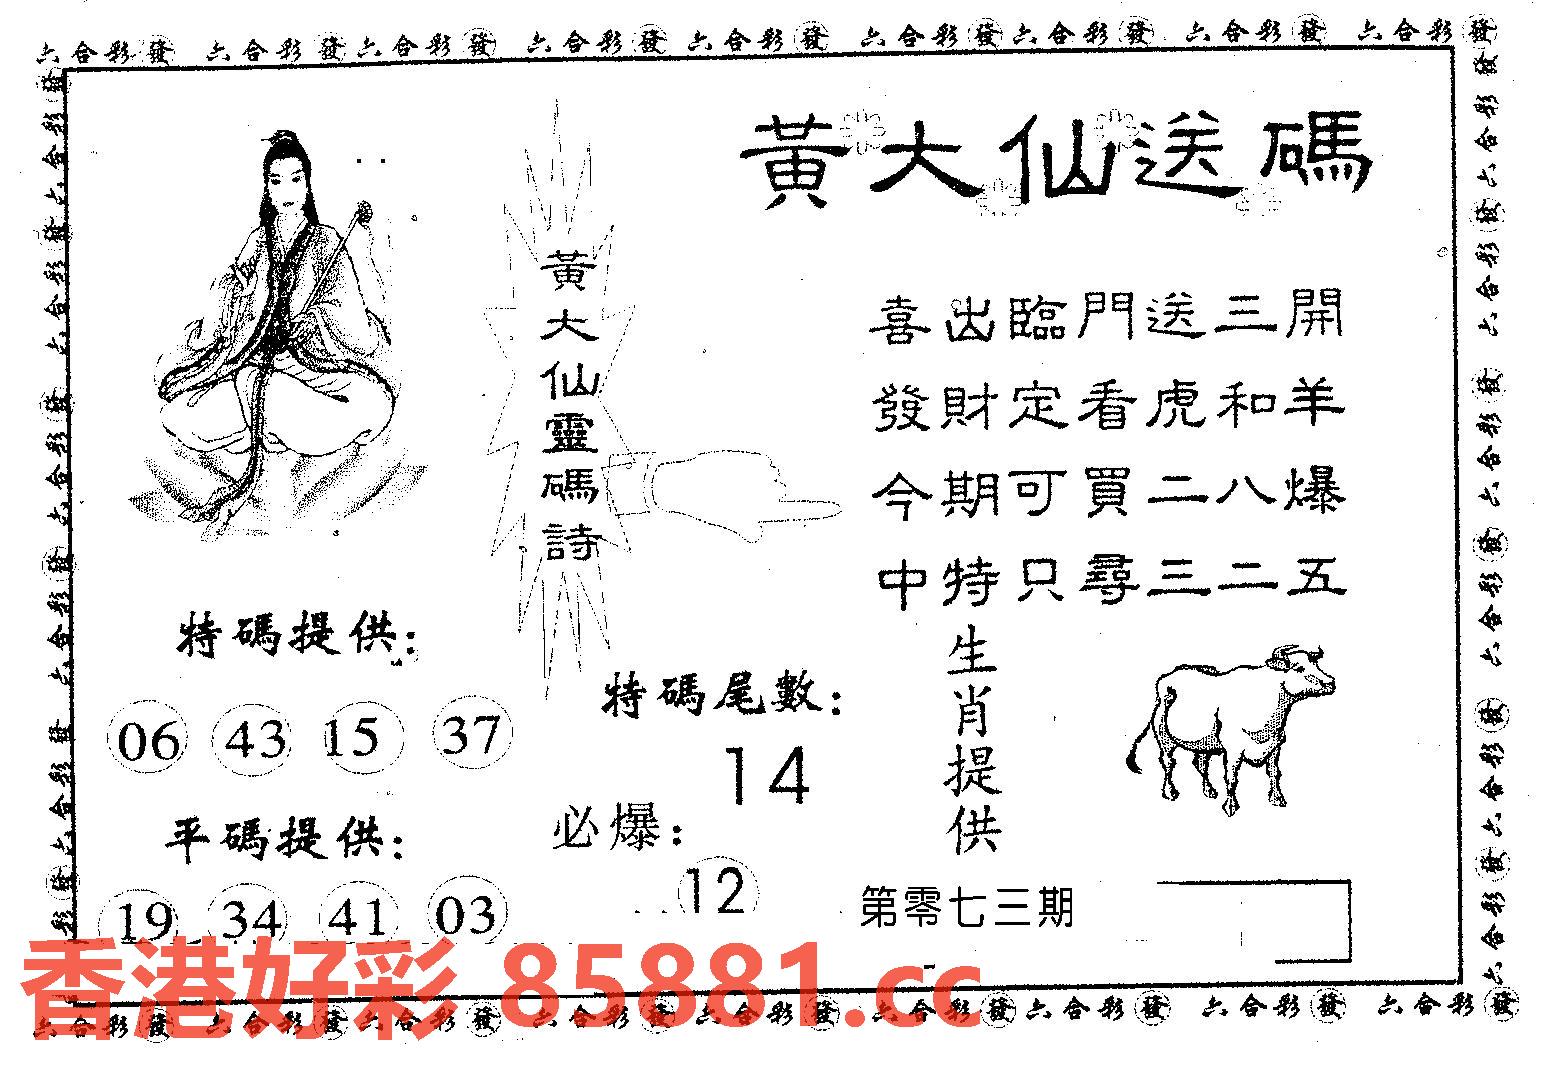 六合彩發 六合彩發 六合彩發 六合彩發 六合彩發 六合彩發 六合彩發 六合彩發 六合彩發
黃大仙送碼
黃大仙靈碼詩
喜出臨門送三開
發財定看虎和羊
今期可買二八爆
中特只尋三二五
特碼提供:
06 43 15 37
平碼提供:
19 34 41 03
特碼尾數:
14
必爆:
12
生肖提供
第零七三期
香港好彩 85881.cc
六合彩發 六合彩發 六合彩發 六合彩發 六合彩發 六合彩發 六合彩發 六合彩發 六合彩發